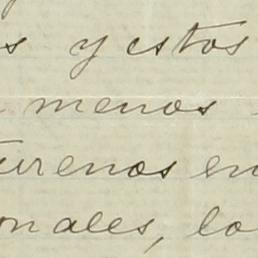 s y estos
menos
urenos en
onales, lo